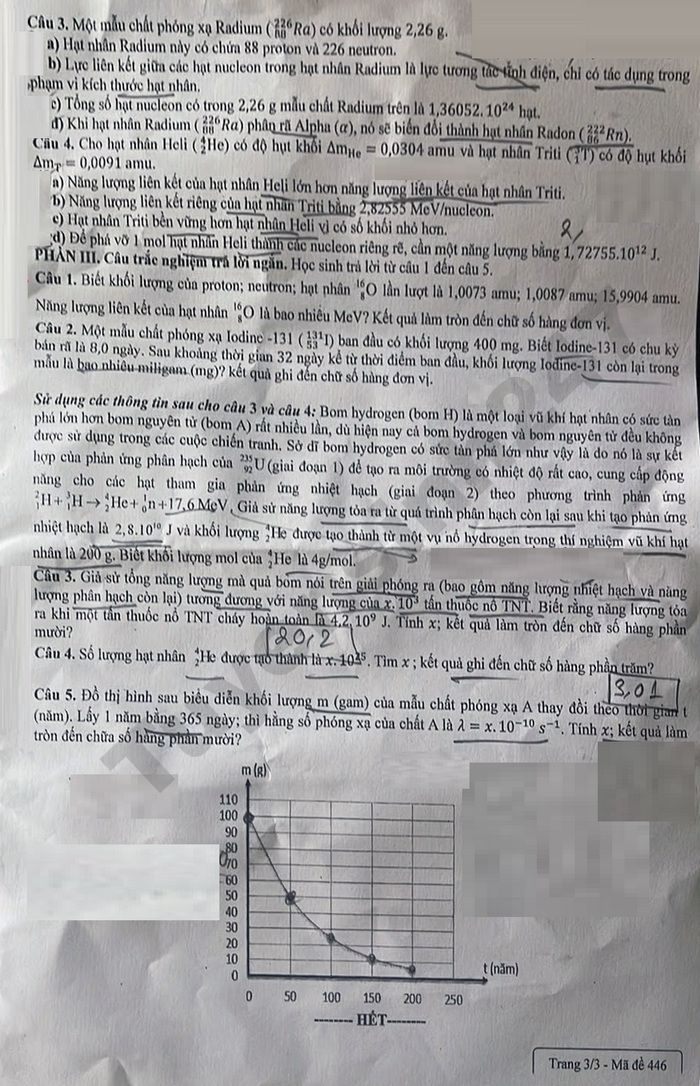 Câu 3. Một mẫu chất phóng xạ Radium (²²⁶₈₈Ra) có khối lượng 2,26 g.
a) Hạt nhân Radium này có chứa 88 proton và 226 neutron.
b) Lực liên kết giữa các hạt nucleon trong hạt nhân Radium là lực tương tác tĩnh điện, chỉ có tác dụng trong
phạm vi kích thước hạt nhân.
c) Tổng số hạt nucleon có trong 2,26 g mẫu chất Radium trên là 1,36052.10²⁴ hạt.
d) Khi hạt nhân Radium (²²⁶₈₈Ra) phân rã Alpha (α), nó sẽ biến đổi thành hạt nhân Radon (²²²₈₆Rn).
Câu 4. Cho hạt nhân Heli (⁴₂He) có độ hụt khối Δm_He = 0,0304 amu và hạt nhân Triti (³₁T) có độ hụt khối
Δm_T = 0,0091 amu.
a) Năng lượng liên kết của hạt nhân Heli lớn hơn năng lượng liên kết của hạt nhân Triti.
b) Năng lượng liên kết riêng của hạt nhân Triti bằng 2,82555 MeV/nucleon.
c) Hạt nhân Triti bền vững hơn hạt nhân Heli vì có số khối nhỏ hơn.
d) Để phá vỡ 1 mol hạt nhân Heli thành các nucleon riêng rẽ, cần một năng lượng bằng 1,72755.10¹² J.
2,
PHẦN III. Câu trắc nghiệm trả lời ngắn. Học sinh trả lời từ câu 1 đến câu 5.
Câu 1. Biết khối lượng của proton; neutron; hạt nhân ¹⁶₈O lần lượt là 1,0073 amu; 1,0087 amu; 15,9904 amu.
Năng lượng liên kết của hạt nhân ¹⁶₈O là bao nhiêu MeV? Kết quả làm tròn đến chữ số hàng đơn vị.
Câu 2. Một mẫu chất phóng xạ Iodine -131 (¹³¹₅₃I) ban đầu có khối lượng 400 mg. Biết Iodine-131 có chu kỳ
bán rã là 8,0 ngày. Sau khoảng thời gian 32 ngày kể từ thời điểm ban đầu, khối lượng Iodine-131 còn lại trong
mẫu là bao nhiêu miligam (mg)? kết quả ghi đến chữ số hàng đơn vị.
Sử dụng các thông tin sau cho câu 3 và câu 4: Bom hydrogen (bom H) là một loại vũ khí hạt nhân có sức tàn
phá lớn hơn bom nguyên tử (bom A) rất nhiều lần, dù hiện nay cả bom hydrogen và bom nguyên tử đều không
được sử dụng trong các cuộc chiến tranh. Sở dĩ bom hydrogen có sức tàn phá lớn như vậy là do nó là sự kết
hợp của phản ứng phân hạch của ²³⁵₉₂U (giai đoạn 1) để tạo ra môi trường có nhiệt độ rất cao, cung cấp động
năng cho các hạt tham gia phản ứng nhiệt hạch (giai đoạn 2) theo phương trình phản ứng
²₁H + ³₁H → ⁴₂He + ¹₀n + 17,6 MeV. Giả sử năng lượng tỏa ra từ quá trình phân hạch còn lại sau khi tạo phản ứng
nhiệt hạch là 2,8.10¹⁰ J và khối lượng ⁴₂He được tạo thành từ một vụ nổ hydrogen trong thí nghiệm vũ khí hạt
nhân là 200 g. Biết khối lượng mol của ⁴₂He là 4g/mol.
Câu 3. Giả sử tổng năng lượng mà quả bom nói trên giải phóng ra (bao gồm năng lượng nhiệt hạch và năng
lượng phân hạch còn lại) tương đương với năng lượng của x.10³ tấn thuốc nổ TNT. Biết rằng năng lượng tỏa
ra khi một tấn thuốc nổ TNT cháy hoàn toàn là 4,2.10⁹ J. Tính x; kết quả làm tròn đến chữ số hàng phần
mười?
20,2
Câu 4. Số lượng hạt nhân ⁴₂He được tạo thành là x.10²⁵. Tìm x ; kết quả ghi đến chữ số hàng phần trăm?
3,01
Câu 5. Đồ thị hình sau biểu diễn khối lượng m (gam) của mẫu chất phóng xạ A thay đổi theo thời gian t
(năm). Lấy 1 năm bằng 365 ngày; thì hằng số phóng xạ của chất A là λ = x.10⁻¹⁰ s⁻¹. Tính x; kết quả làm
tròn đến chữa số hàng phần mười?
m (g)
110
100
90
80
70
60
50
40
30
20
10
0
t (năm)
0 50 100 150 200 250
-------- HẾT--------
Trang 3/3 - Mã đề 446